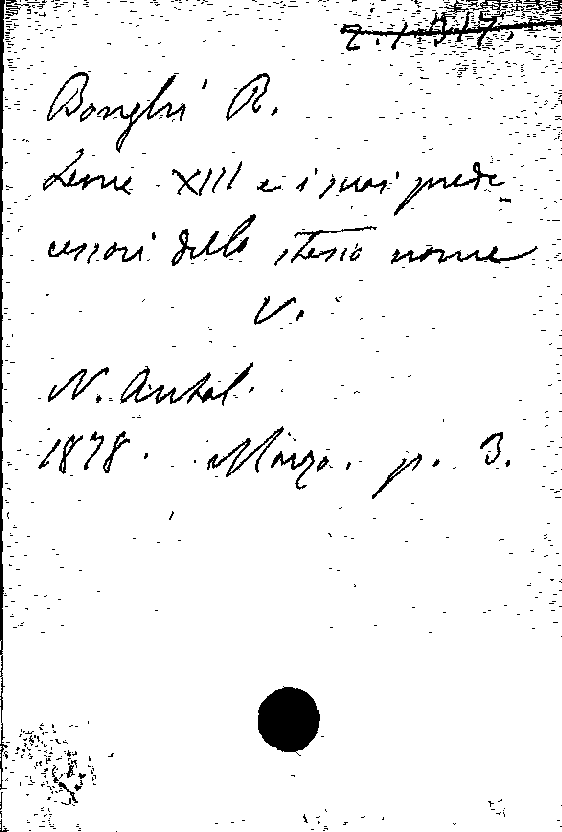 Z.1.B.17.
Bonghi R.
Leone XIII e i suoi prede_
cessori dello stesso nome
V.
N. Antol.
1878. Marzo. p. 3.